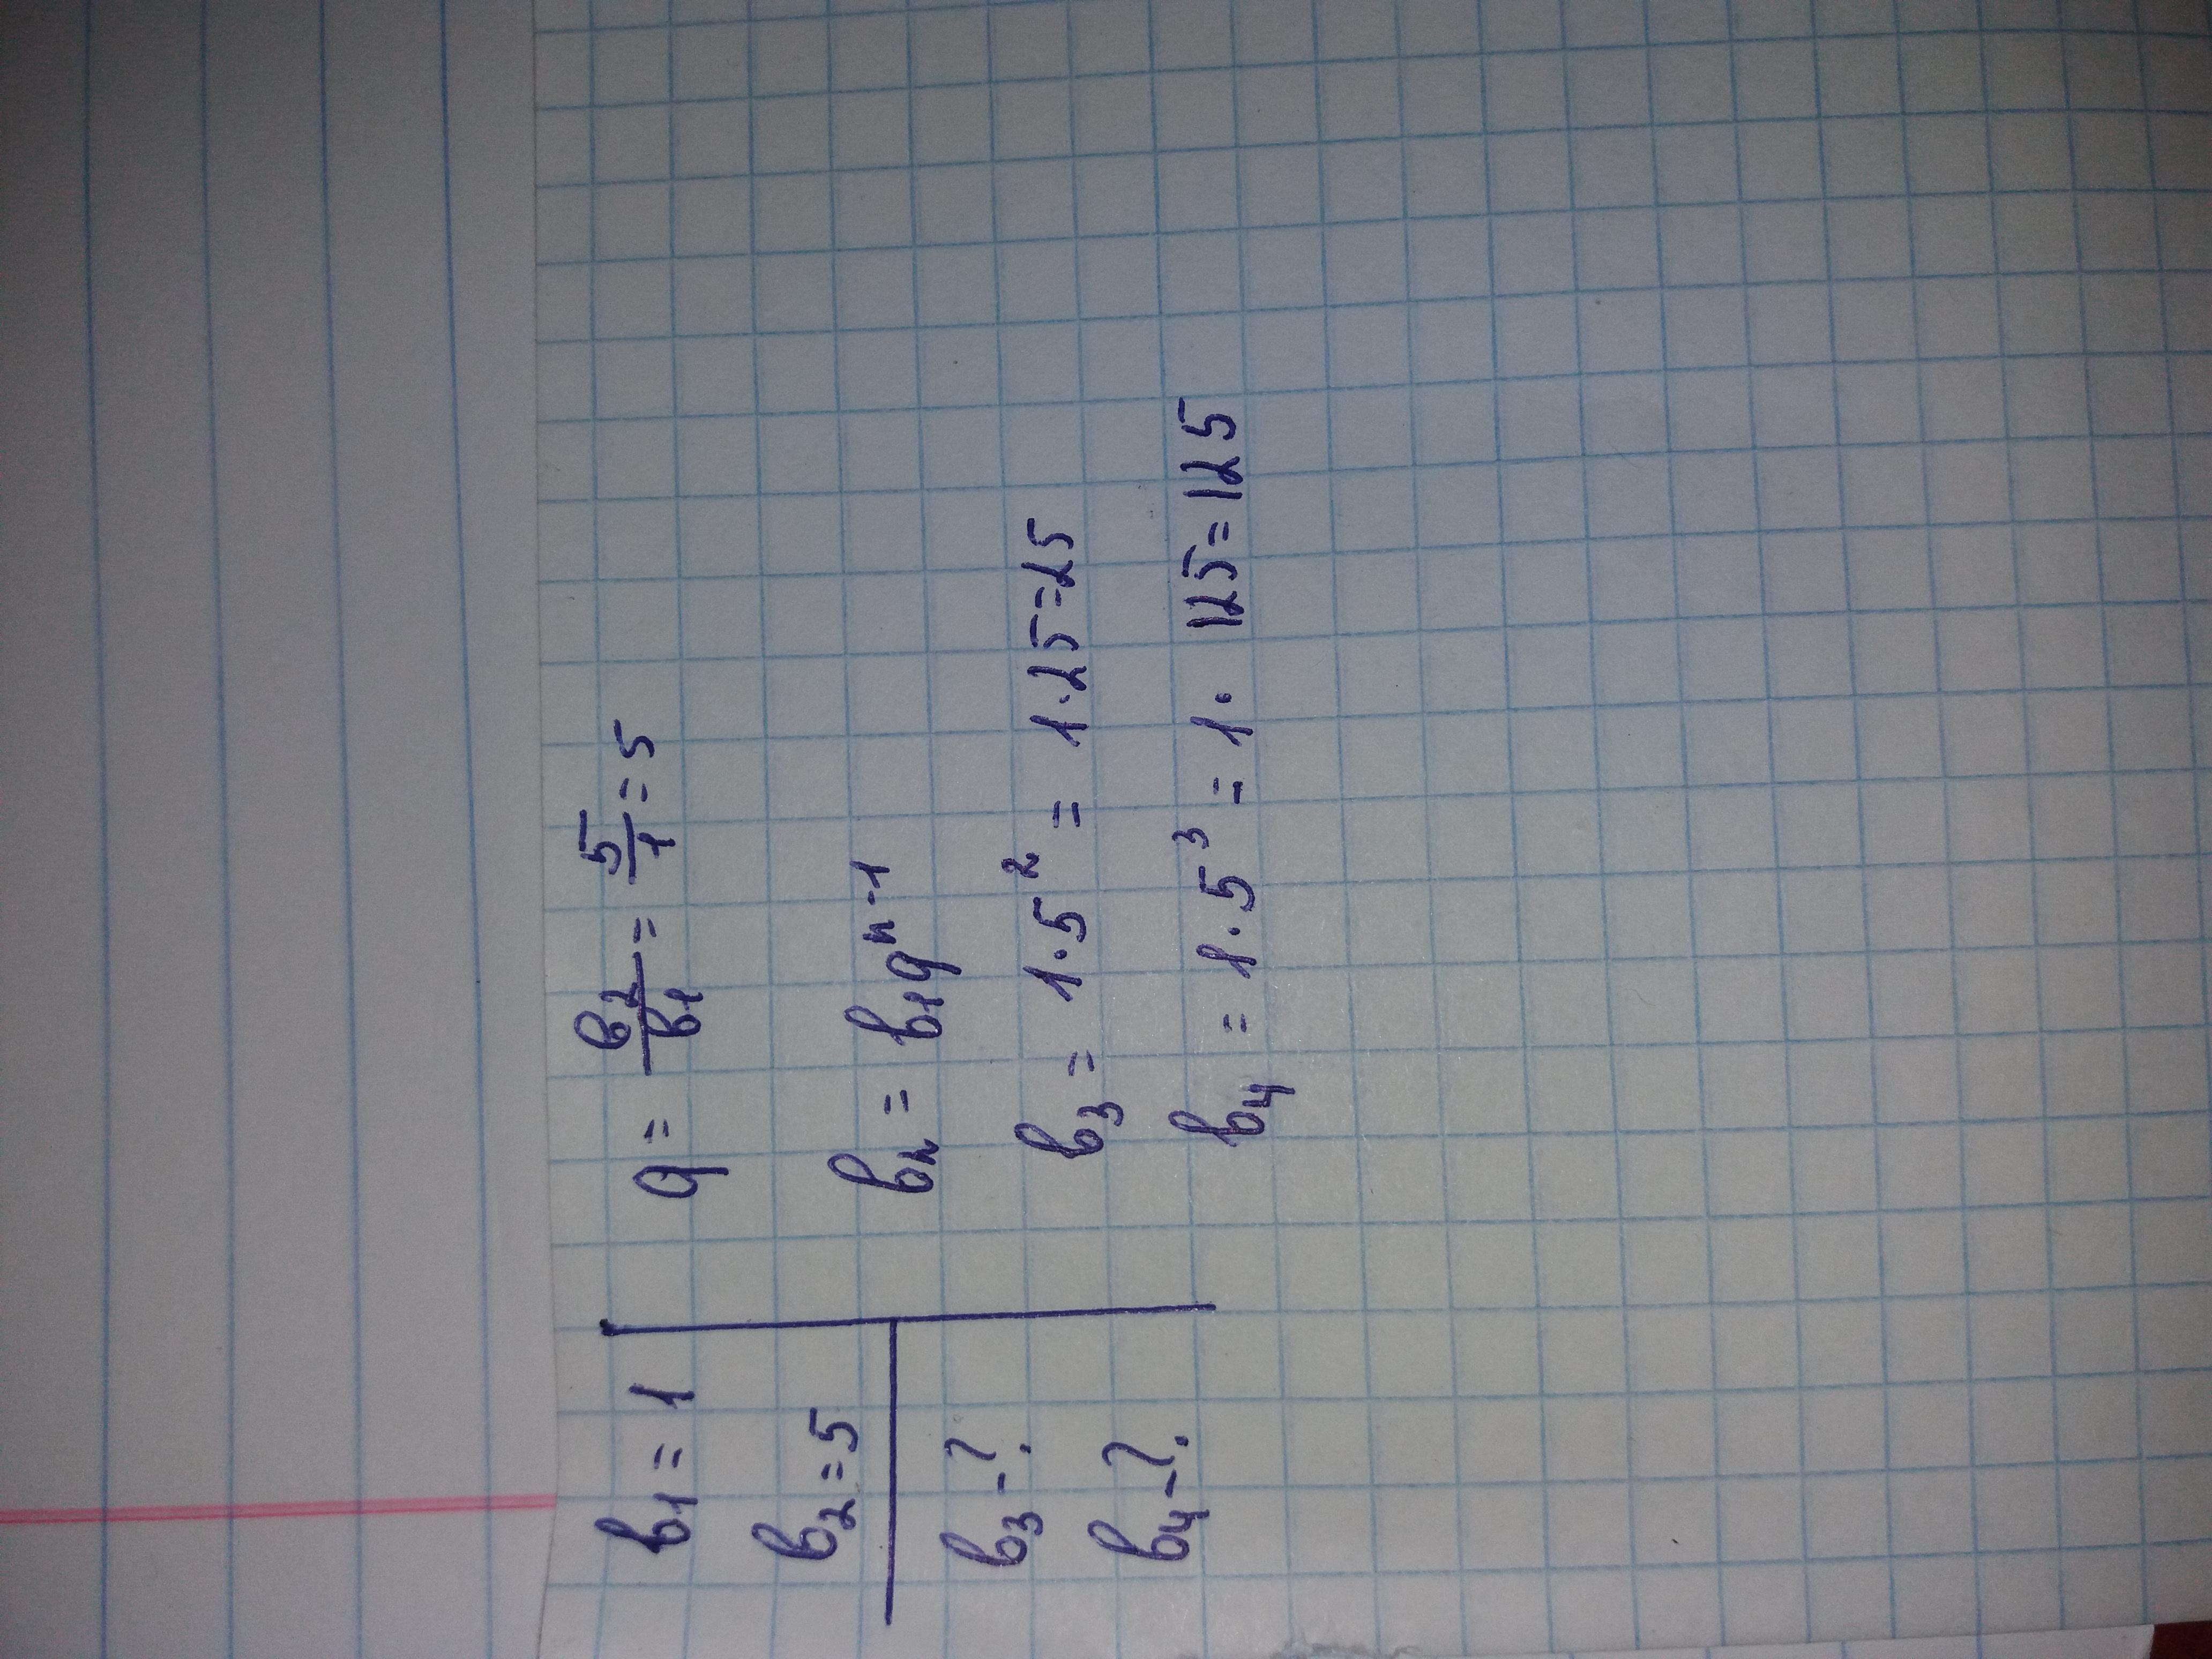 b₁ = 1
b₂ = 5
b₃ - ?
b₄ - ?
q = b₂/b₁ = 5/1 = 5
bₙ = b₁qⁿ⁻¹
b₃ = 1·5² = 1·25 = 25
b₄ = 1·5³ = 1·125 = 125